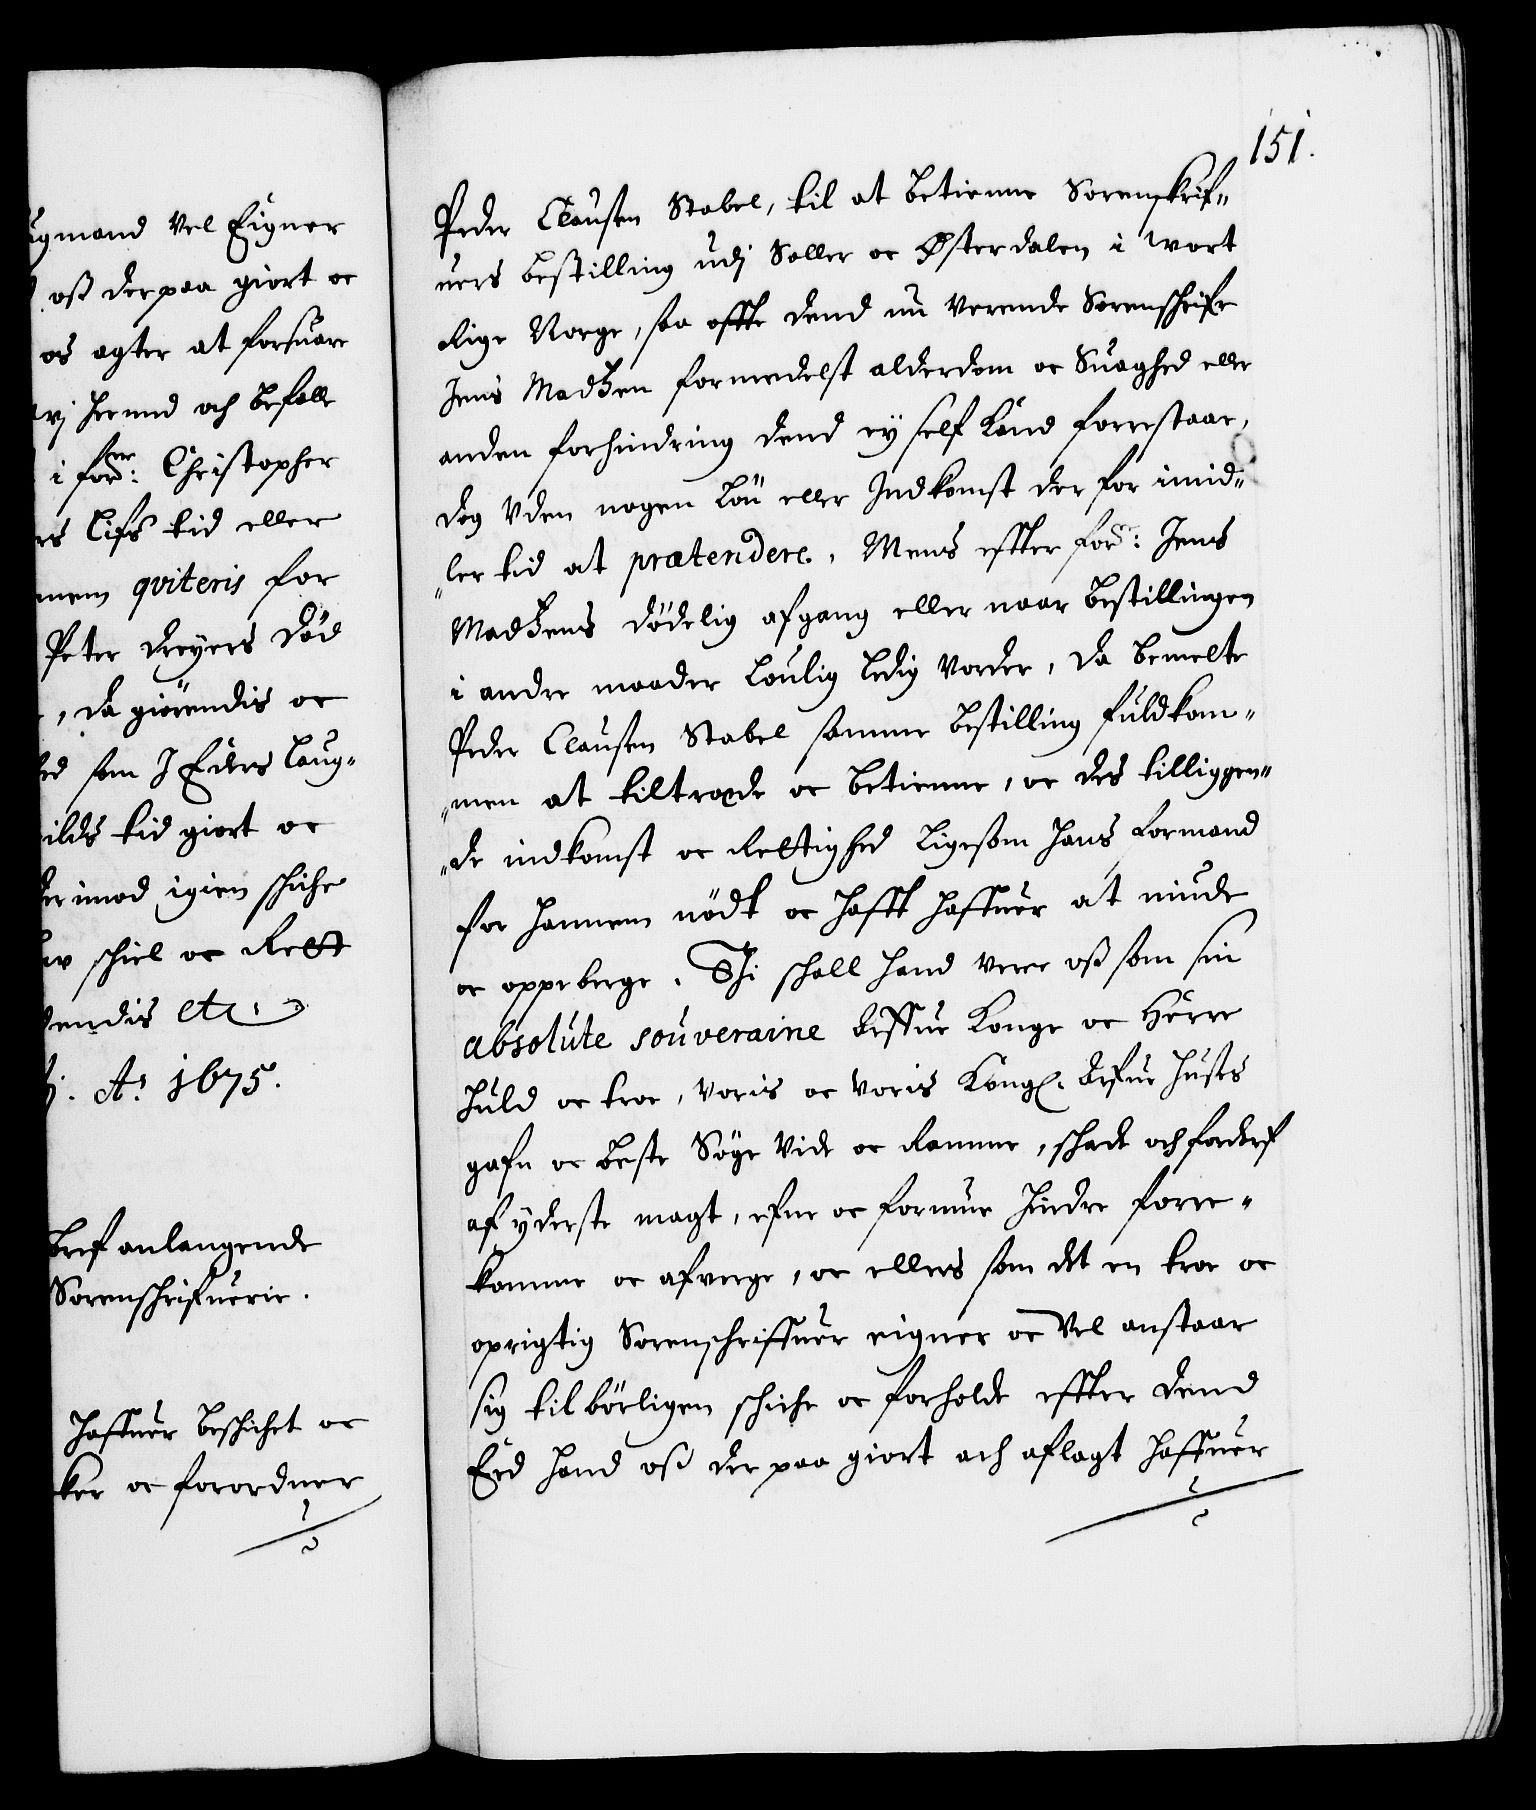 ugmand vel Eigner
oß derpaa giort oc
os agter at forsuare
vj herund och befalle
i for^ne: Christopher
rs lifs tid eller
nem qviteris for
Peter Dreyers død
, da giörendis oc
ed som J Eders laug-
ilds tid giort oc
der imod igien schiche
schiel oc Rett
endis etc:
A° 1675.
Bref anlangende
Sorenschrifuerie.
Haffuer beschichet oc
ker oc forordner
151.
Peder Clausen Stabel, til at betienne Sorenskrif-
uers bestilling udj Soller oc Østerdalen i wort
Rige Norge, saa offte dend nu verende Sorenschrifr
Jens Madtzen formedelst alderdom oc Suaghed eller
anden forhindring dend ey self kand forrestaar,
dog uden nogen løn eller Indkomst der for imid-
ler tid at prætendere. Mens effter for^ne: Jens
Madtzens dødelig afgang eller naar bestillingen
i andre maader loulig ledig vorder, da bemelte
Peder Clausen Stabel samme bestilling fuldkom-
men at tiltræde oc betienne, oc des tilliggen-
de indkomst oc Rettighed ligesom hans formand
for hannem nødt oc hafft haffuer at niude
oc oppeberge. Thi schall hand were oß som sin
absolute souveraine Arffue Konge oc Herre
huld oc troe, voris oc voris Kongl. Arfue Huses
gafn oc beste Søge vide oc Ramme, schade och forderf
af yderste magt, efne oc formue hindre forre-
komme oc afverge, oc ellers som det en troe oc
oprigtig Sorenschriffuer eigner oc vel anstaar
sig tilbörligen schiche oc forholde effter dend
Eed hand oß der paa giort och aflagt haffuer